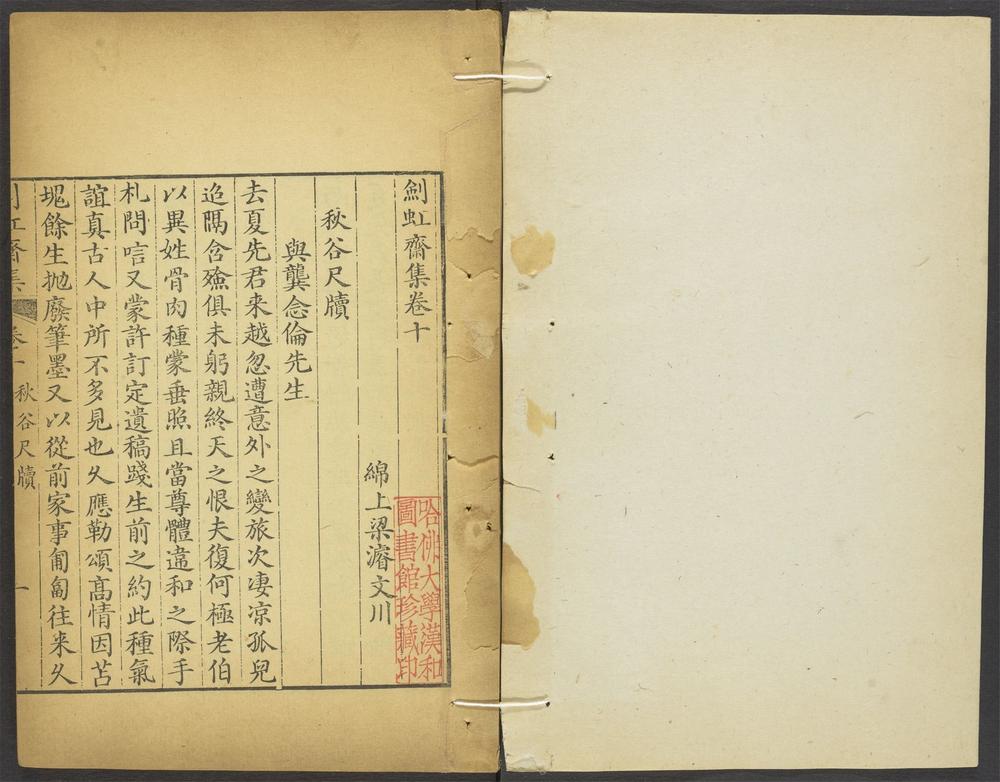 劍虹齋集卷十
綿上梁濬文川
秋谷尺牘
與龔念倫先生
去夏先君来越忽遭意外之變旅次凄凉孤兒
迨隅含殮俱未躬親終天之恨夫復何極老伯
以異姓骨肉種蒙垂照且當尊體違和之際手
札問唁又蒙許訂定遺稿踐生前之約此種氣
誼真古人中所不多見也久應勒頌高情因苫
塊餘生抛廢筆墨又以從前家事匍匐往来久
秋谷尺牘
一
哈佛大學漢和
圖書館珍藏印